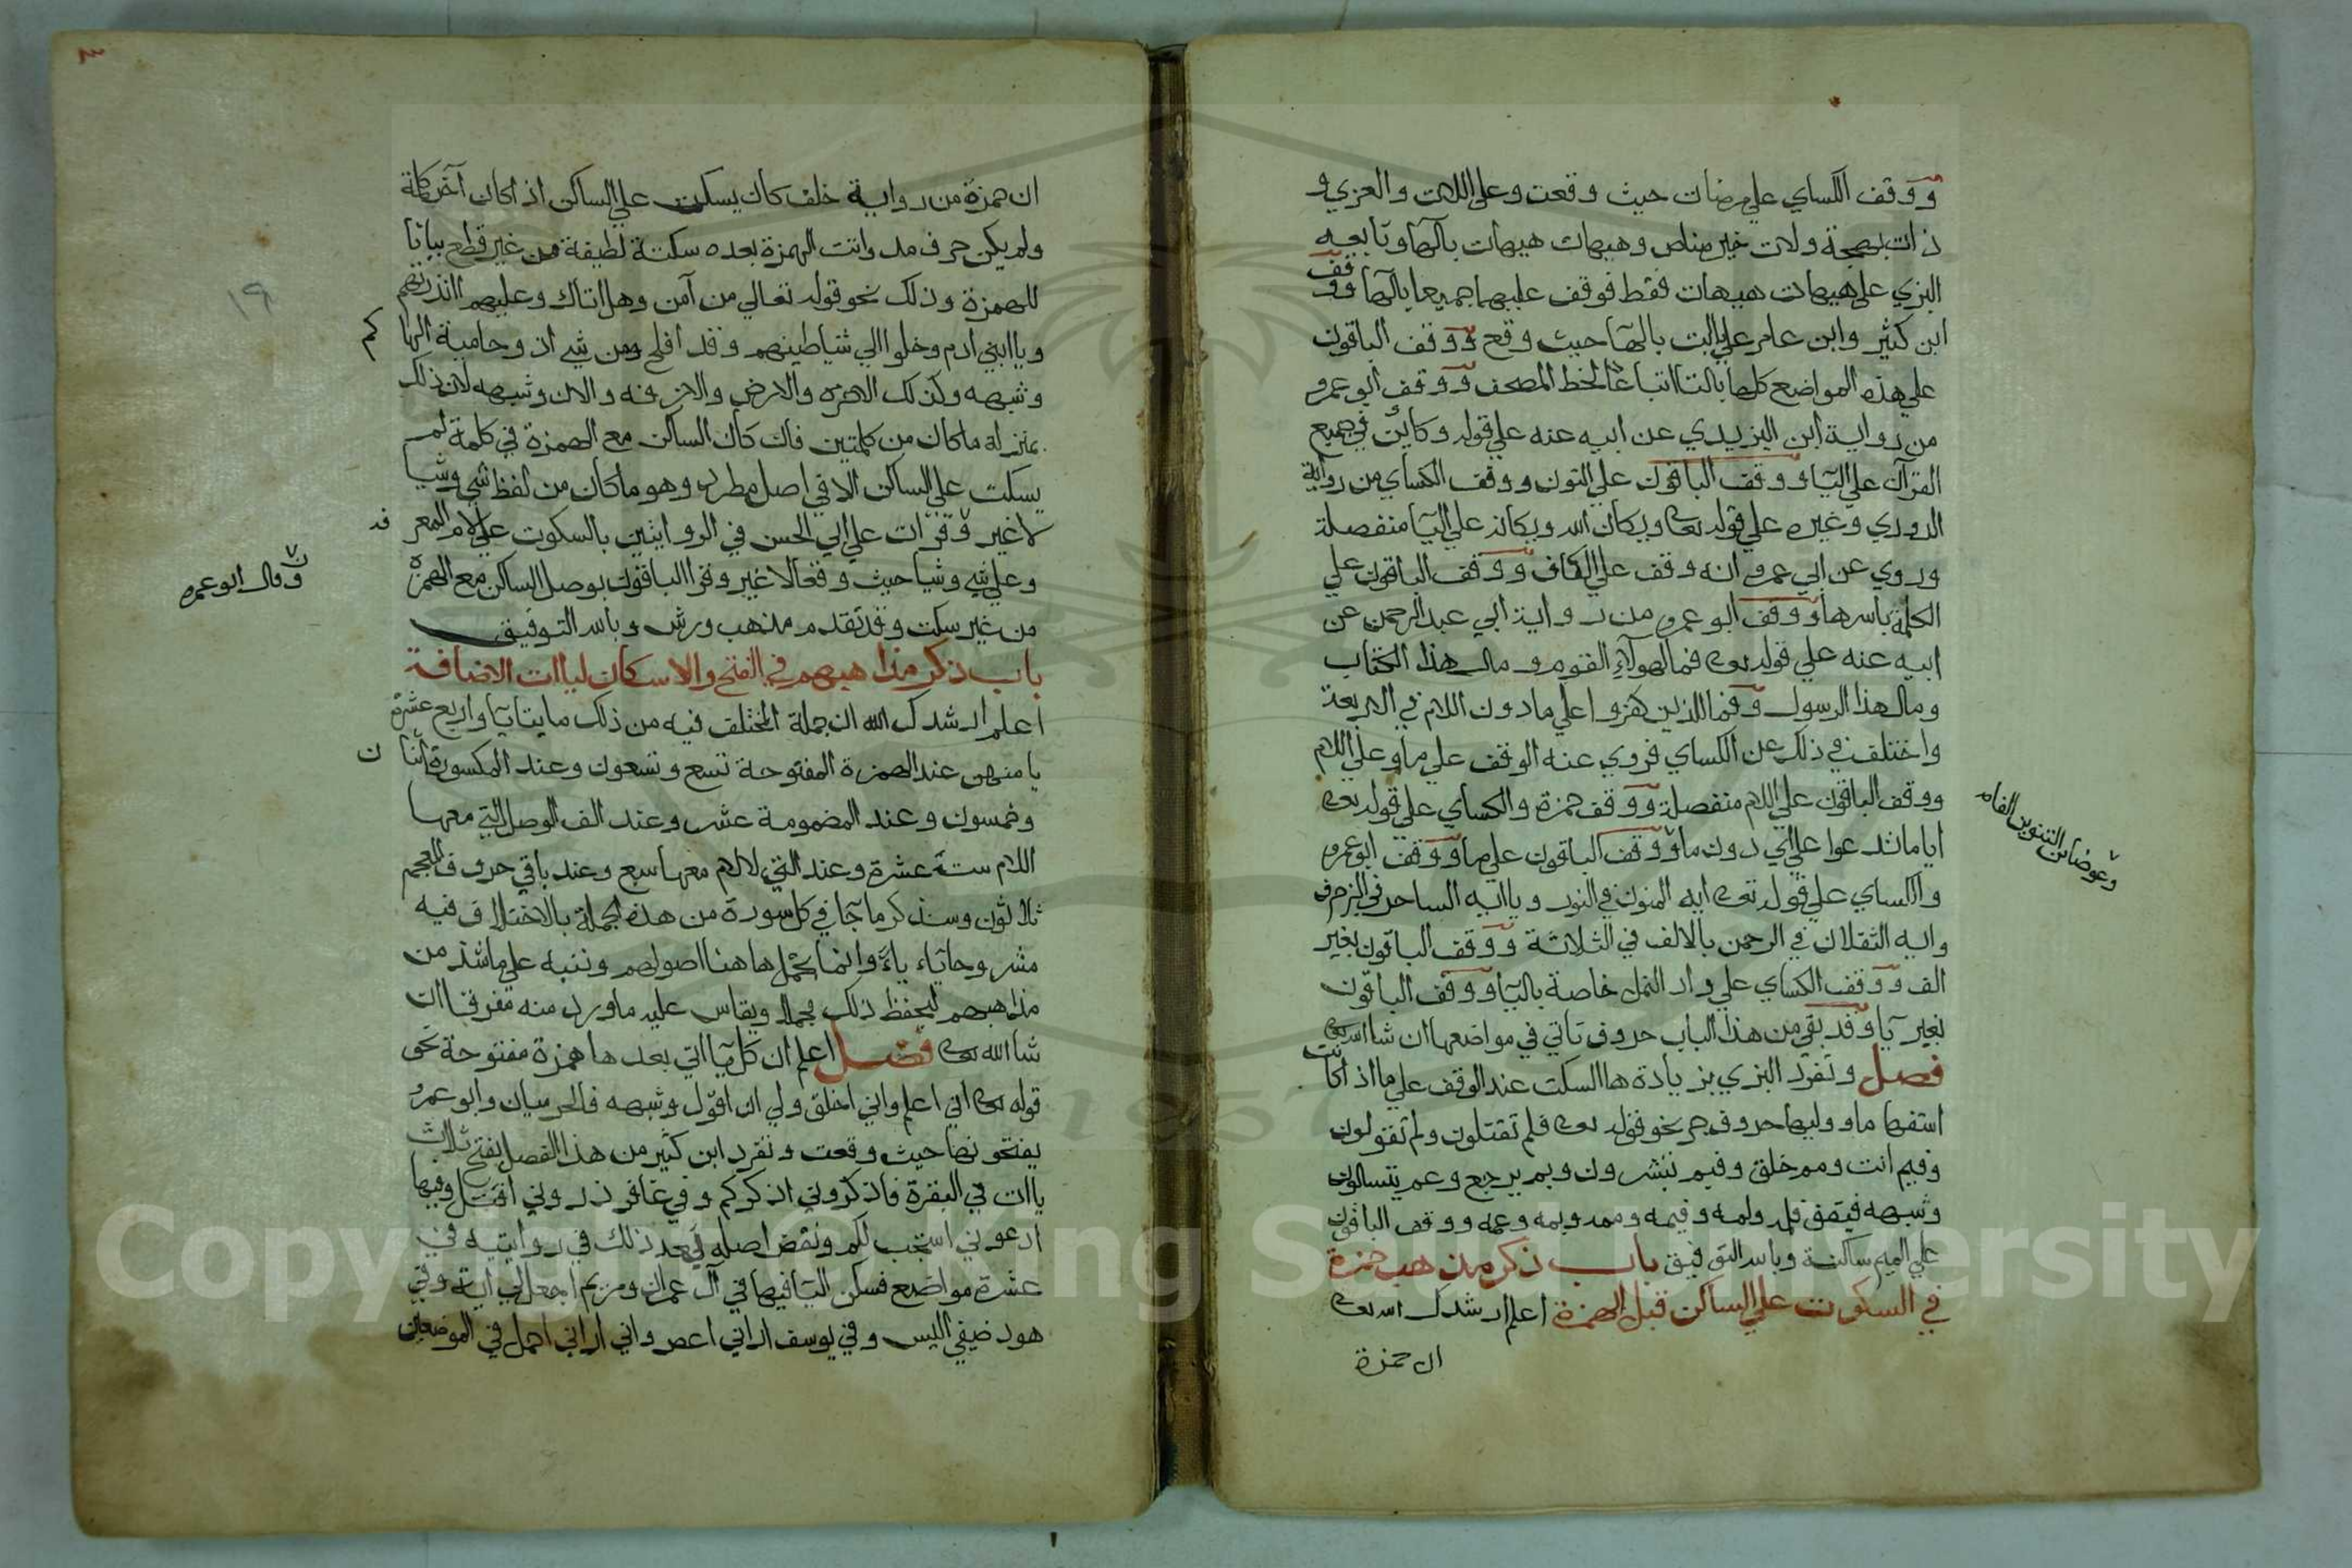 ووقف الكساي علي مرضات حيث وقعت وعلي اللات والعزي و
ذات بهجة ولات حين مناص وهيهات هيهات بالها وتابعه
البزي علي هيهات هيهات فقط فوقف عليهما جميعا بالها ووقف
ابن كثير وابن عامر علي يابت بالها حيث وقع ووقف الباقون
علي هذه المواضع كلها بالتا اتباعا لخط المصحف ووقف ابو عمرو
من رواية ابن اليزيدي عن ابيه عنه علي قوله وكاين في جميع
القران علي اليا ووقف الباقون علي النون ووقف الكساي من رواية
الدوري وغيره علي قوله تعالى ويكان الله ويكانه علي اليا منفصلة
وروي عن ابي عمرو انه وقف علي الكاف ووقف الباقون علي
الكلمة باسرها ووقف ابو عمرو من رواية ابي عبد الرحمن عن
ابيه عنه علي قوله تعالى فمال هولاء القوم ومال هذا الكتاب
ومال هذا الرسول وفمال الذين كفروا علي ما دون اللام في الاربعة
واختلف في ذلك عن الكساي فروي عنه الوقف علي ما وعلي اللام
ووقف الباقون علي اللام منفصلة ووقف حمزة والكساي علي قوله تعالى
وعوضا من التنوين الفا م
اياما تدعوا علي اي دون ما ووقف الباقون علي ما ووقف ابو عمرو
والكساي علي قوله تعالى ايه المنون في النور ويا ايه الساحر في الزخرف
وايه الثقلان في الرحمن بالالف في الثلاثة ووقف الباقون بغير
الف ووقف الكساي علي واد النمل خاصة باليا ووقف الباقون
بغير يا وقد بقي من هذا الباب حروف تاتي في مواضعها ان شا الله تعالى
فصل وتفرد البزي بزيادة ها السكت عند الوقف علي ما اذا كانت
استفهاما ووليها حروف جر نحو قوله تعالى فلم تقتلون ولم تقولون
وفيم انت ومم خلق وفبم تبشرون وبم يرجع وعم يتسالون
وشبهه فيقف فلمه ولمه وفيمه وممه وبمه وعمه ووقف الباقون
علي الميم ساكنة وبالله التوفيق باب ذكر مذهب حمزة
في السكوت علي الساكن قبل الهمزة اعلم ارشدك الله تعالى
ان حمزة
١٩
ان حمزة من رواية خلف كان يسكت علي الساكن اذا كان آخر كلمة
ولم يكن حرف مد واتت الهمزة بعده سكتة لطيفة من غير قطع بيانا
للهمزة وذلك نحو قوله تعالي من آمن وهل اتاك وعليهم اانذرتهم
ويا ابني ادم وخلوا الي شياطينهم وقد افلح ومن شي اذ وحامية الهاكم
وشبهه وكذلك الاخرة والارض والازفه والان وشبهه لان ذلك
بمنزلة ما كان من كلمتين فان كان الساكن مع الهمزة في كلمة لم
يسكت علي الساكن الا في اصل مطرد وهو ما كان من لفظ شي وشيا
لا غير وقرات علي ابي الحسن في الروايتين بالسكوت علي لام المعرفه
وعلي شي وشيا حيث وقعا لا غير وقرا الباقون بوصل الساكن مع الهمزة
وقال ابو عمرو
من غير سكت وقد تقدم مذهب ورش وبالله التوفيق
باب ذكر مذاهبهم في الفتح والاسكان لياات الاضافة
اعلم ارشدك الله ان جملة المختلف فيه من ذلك مايتا يا واربع عشرة
يا منهن عند الهمزة المفتوحة تسع وتسعون وعند المكسورة اثنان
وخمسون وعند المضمومة عشر وعند الف الوصل التي معها
اللام ستة عشرة وعند التي لا لام معها سبع وعند باقي حروف المعجم
ثلاثون وسنذكر ما جا في كل سورة من هذه الجملة بالاختلاف فيه
مشروحا ياء ياء وانما نجمل ها هنا اصولهم وننبه علي ما شذ من
مذاهبهم ليحفظ ذلك مجملا ويقاس عليه ما ورد منه مفرقا ان
شا الله تعالى فصل اعلم ان كل يا اتي بعدها همزة مفتوحة نحو
قوله تعالى اني اعلم واني اخلق ولي ان اقول وشبهه فالحرميان وابو عمرو
يفتحونها حيث وقعت وتفرد ابن كثير من هذا الفصل بفتح ثلاث
ياات في البقرة فاذكروني اذكركم وفي غافر ذروني اقتل وفيها
ادعوني استجب لكم ونقض اصله بعد ذلك في روايتيه في
عشرة مواضع فسكن اليا فيها في آل عمران ومريم اجعل لي اية وفي
هود ضيفي اليس وفي يوسف اراني اعصر واني اراني احمل في الموضعين
Copyright © King Saud University
1957